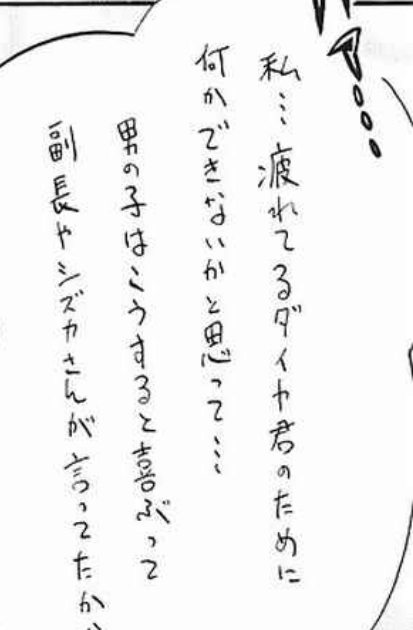 私…疲れてるダイヤ君のために
何かできないかと思って…
男の子はこうすると喜ぶって
副長やシズカさんが言ってたか